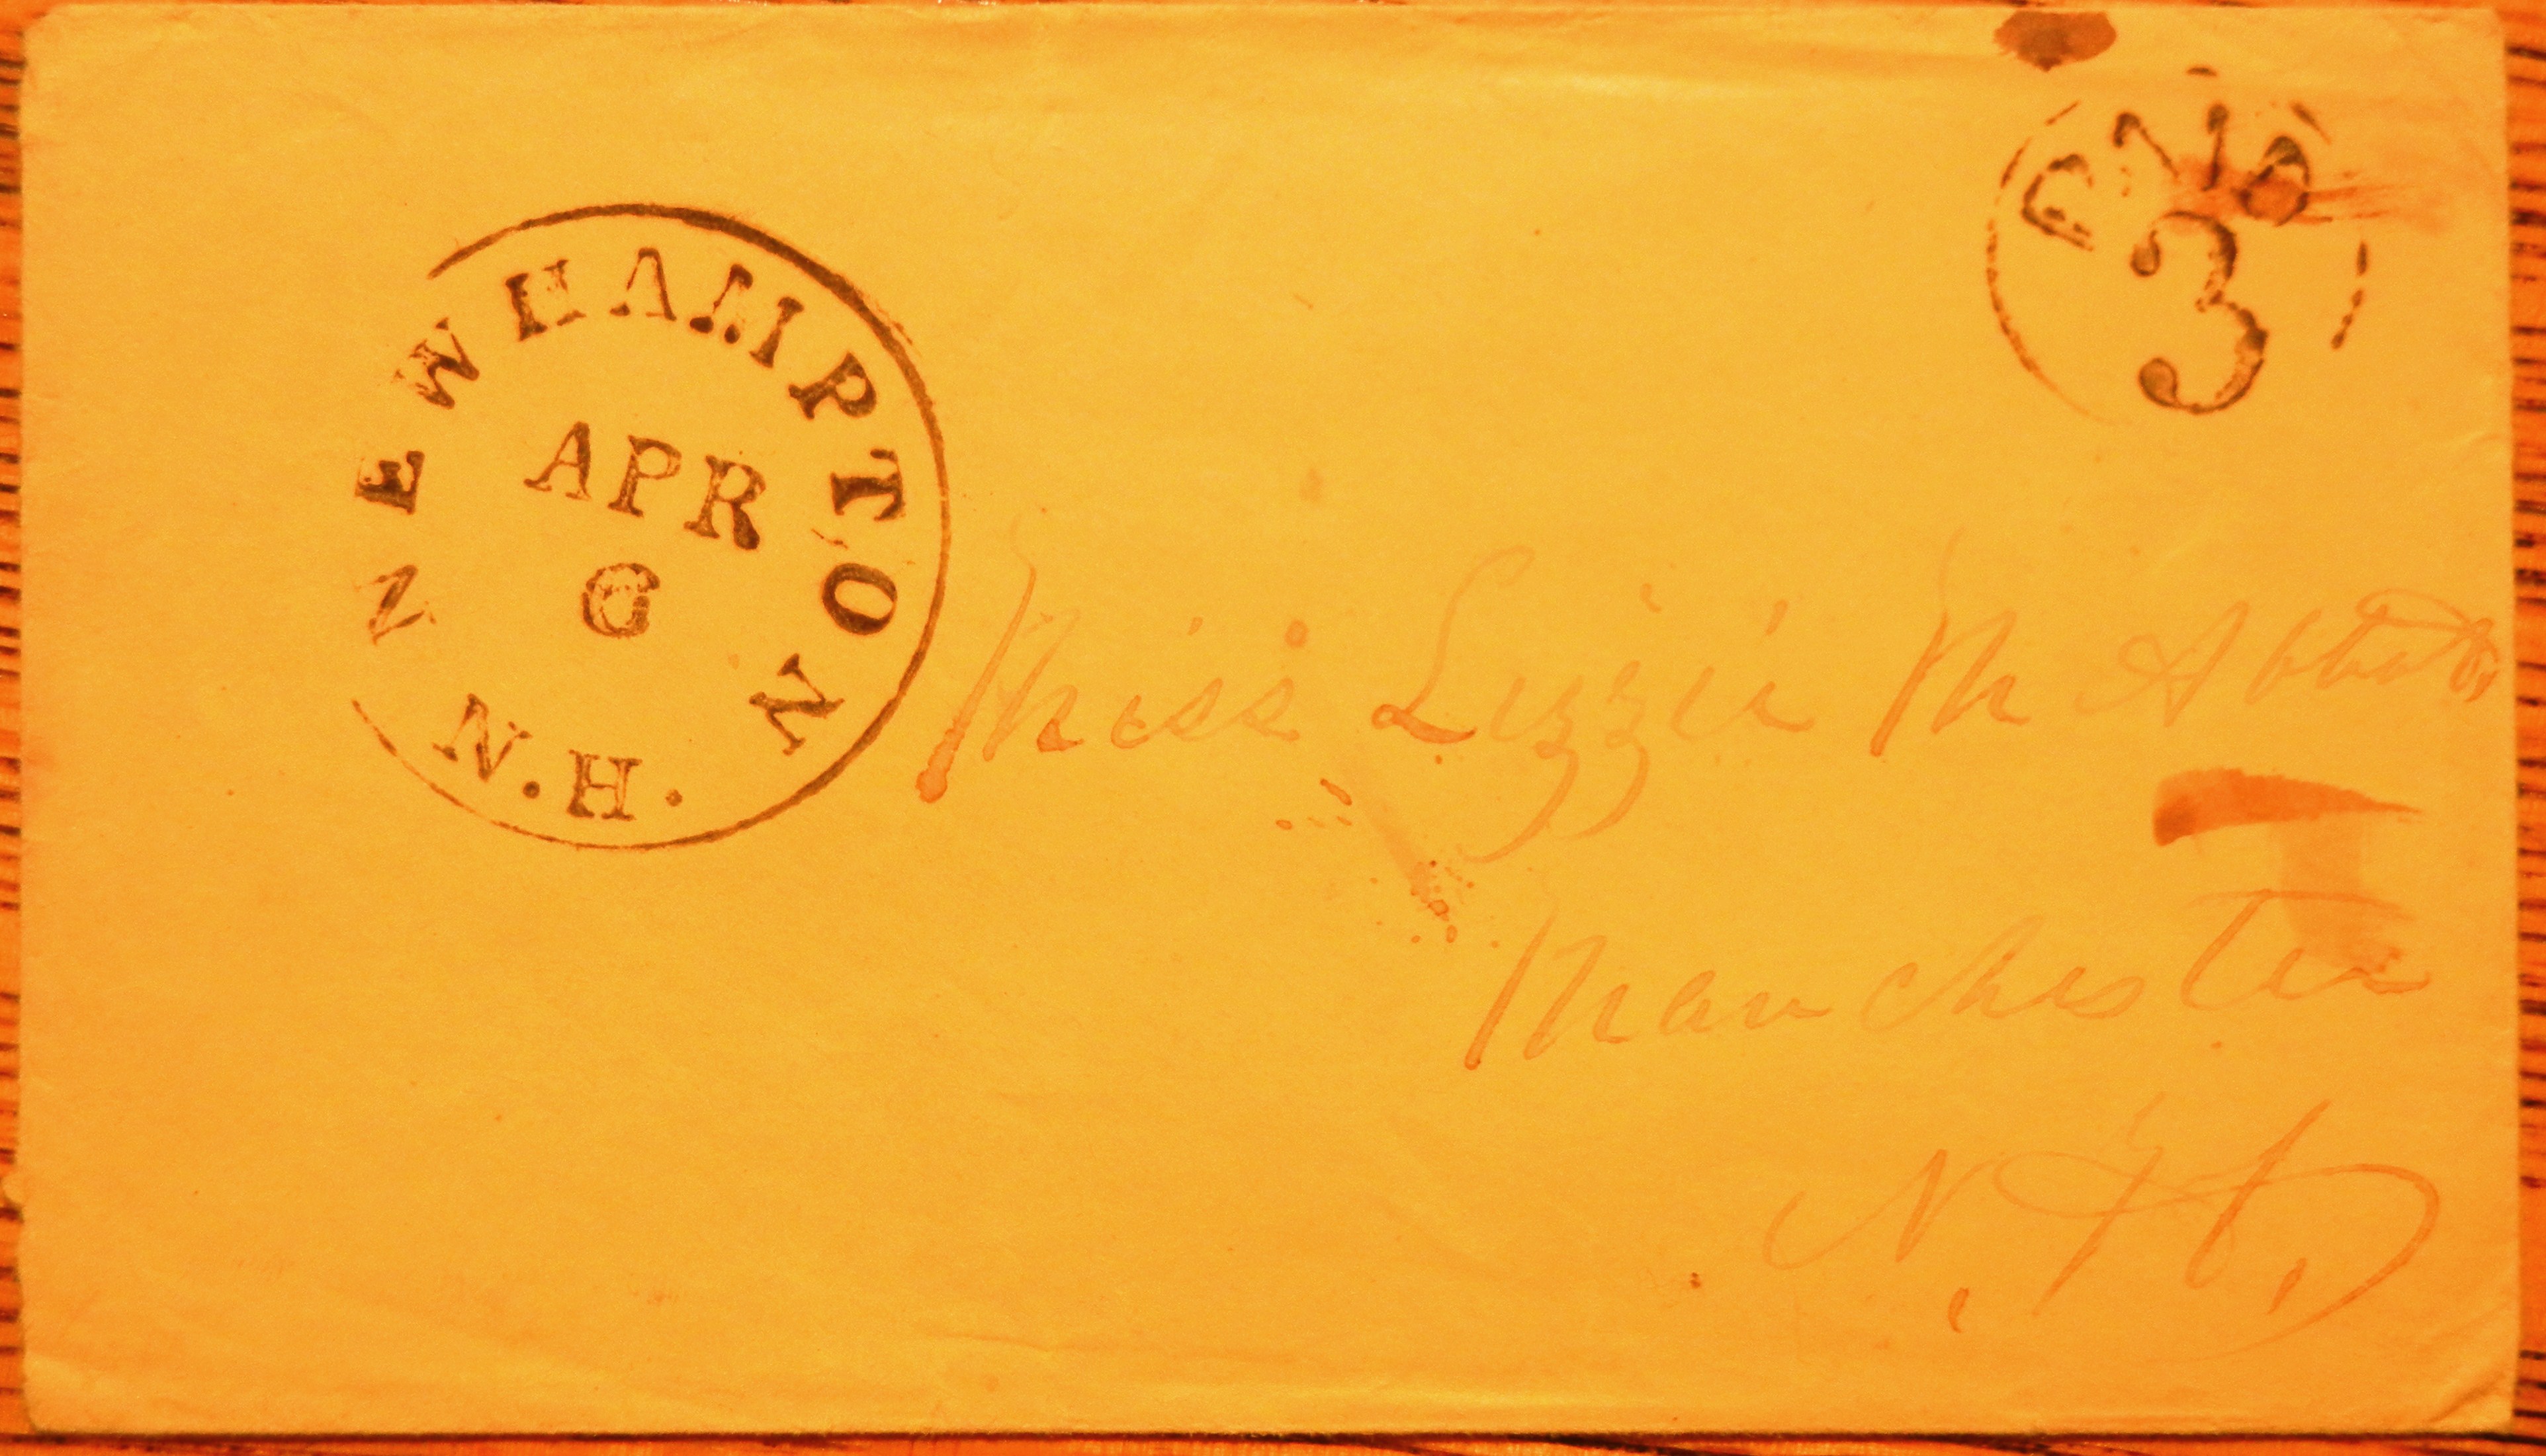 NEW HAMPTON
N.H.
APR
6
PAID
3
Miss Lizzie M Abbott
Manchester
N. H.